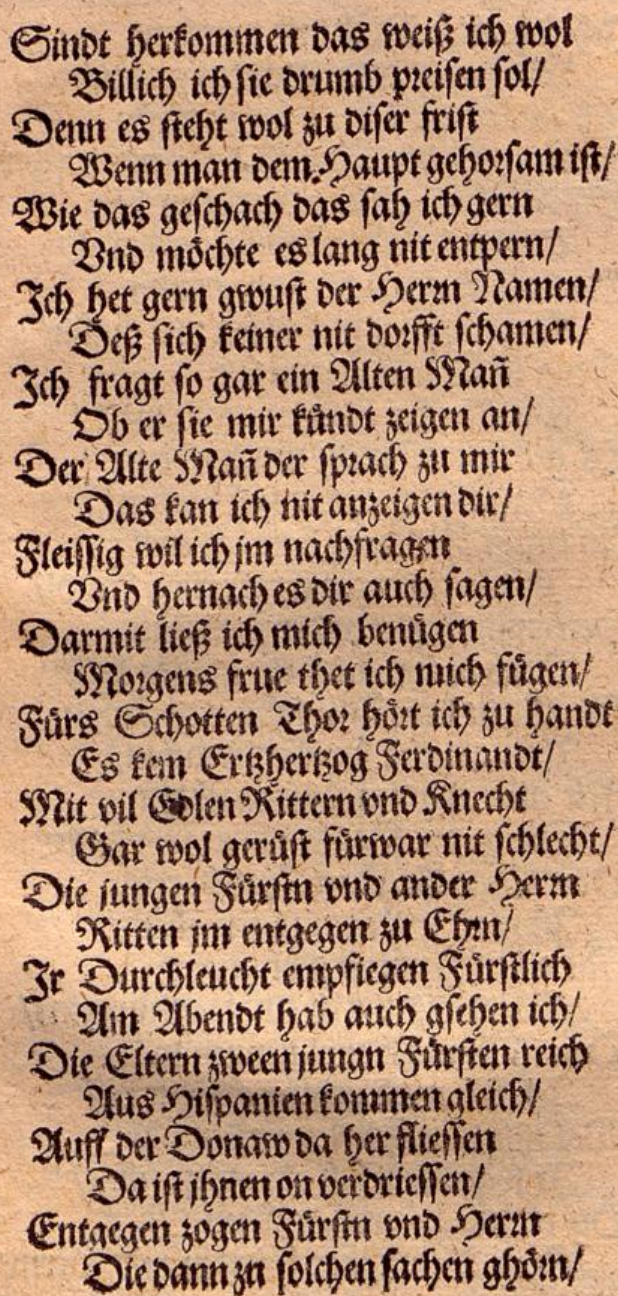 Sindt herkommen das weiß ich wol
Billich ich sie drumb preisen sol/
Denn es steht wol zu diser frist
Wenn man dem Haupt gehorsam ist/
Wie das geschach das sah ich gern
Vnd möchte es lang nit entpern/
Ich het gern gwust der Herrn Namen/
Deß sich keiner nit dorfft schamen/
Ich fragt so gar ein Alten Mañ
Ob er sie mir kündt zeigen an/
Der Alte Mañ der sprach zu mir
Das kan ich nit anzeigen dir/
Fleissig wil ich jm nachfragen
Vnd hernach es dir auch sagen/
Darmit ließ ich mich benügen
Morgens frue thet ich mich fügen/
Fürs Schotten Thor hört ich zu handt
Es kem Ertzhertzog Ferdinandt/
Mit vil Edlen Rittern vnd Knecht
Gar wol gerüst fürwar nit schlecht/
Die jungen Fürstn vnd ander Herrn
Ritten jm entgegen zu Ehrn/
Ir Durchleucht empfiegen Fürstlich
Am Abendt hab auch gsehen ich/
Die Eltern zween jungn Fürsten reich
Aus Hispanien kommen gleich/
Auff der Donaw da her fliessen
Da ist jhnen on verdriessen/
Entgegen zogen Fürstn vnd Herrn
Die dann zu solchen sachen ghörn/